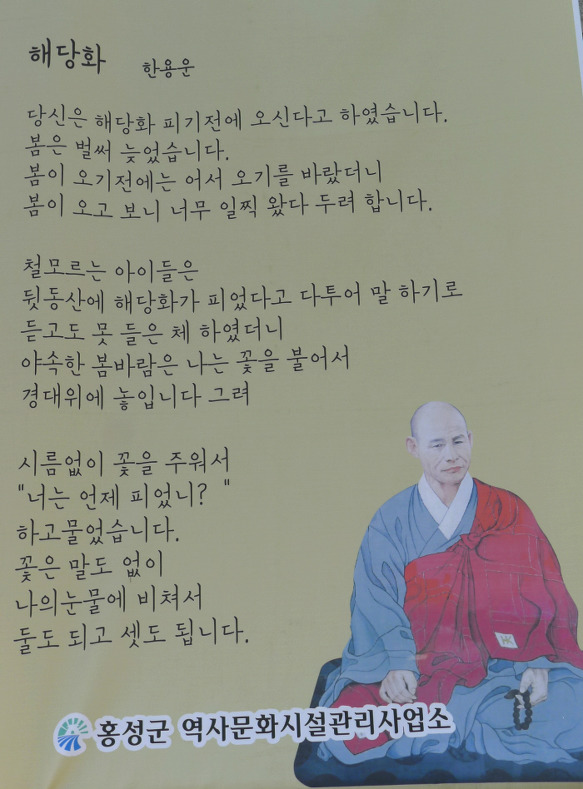 해당화 한용운
당신은 해당화 피기전에 오신다고 하였습니다.
봄은 벌써 늦었습니다.
봄이 오기전에는 어서 오기를 바랐더니
봄이 오고 보니 너무 일찍 왔다 두려 합니다.
철모르는 아이들은
뒷동산에 해당화가 피었다고 다투어 말 하기로
듣고도 못 들은 체 하였더니
야속한 봄바람은 나는 꽃을 불어서
경대위에 놓입니다 그려
시름없이 꽃을 주워서
"너는 언제 피었니? "
하고물었습니다.
꽃은 말도 없이
나의눈물에 비쳐서
둘도 되고 셋도 됩니다.
홍성군 역사문화시설관리사업소